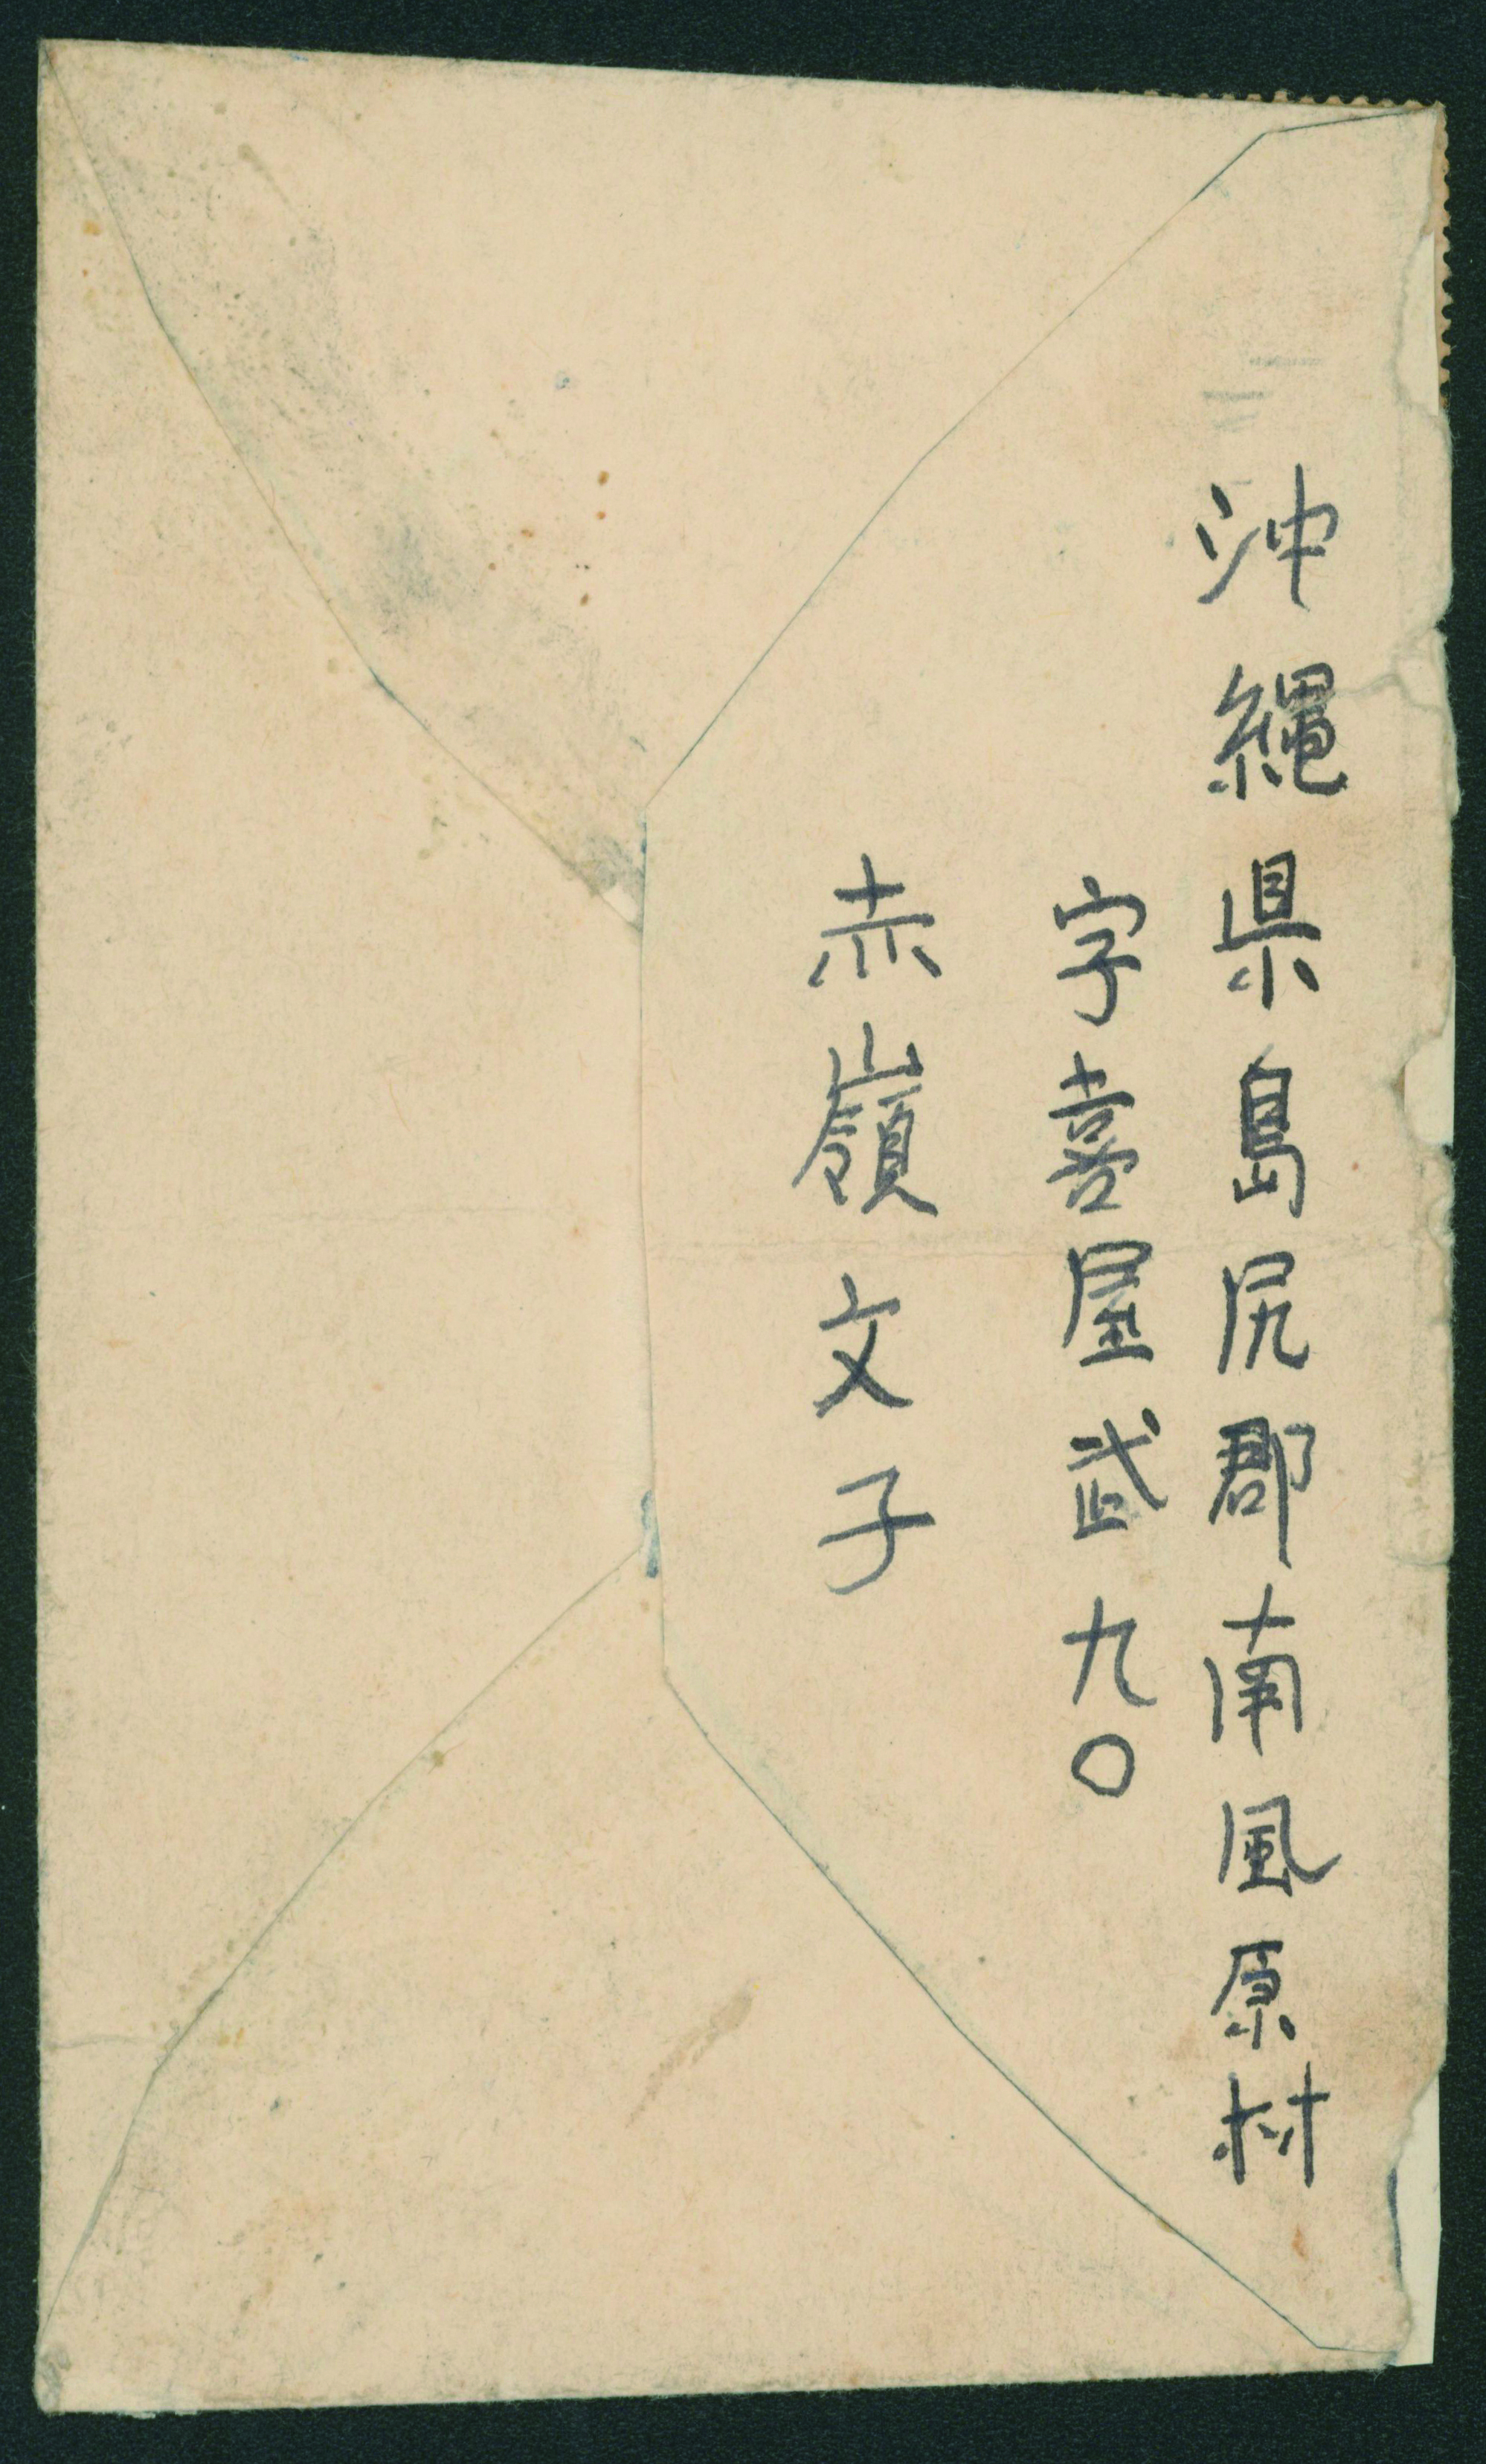 沖縄県島尻郡南風原村
字喜屋武九〇
赤嶺文子